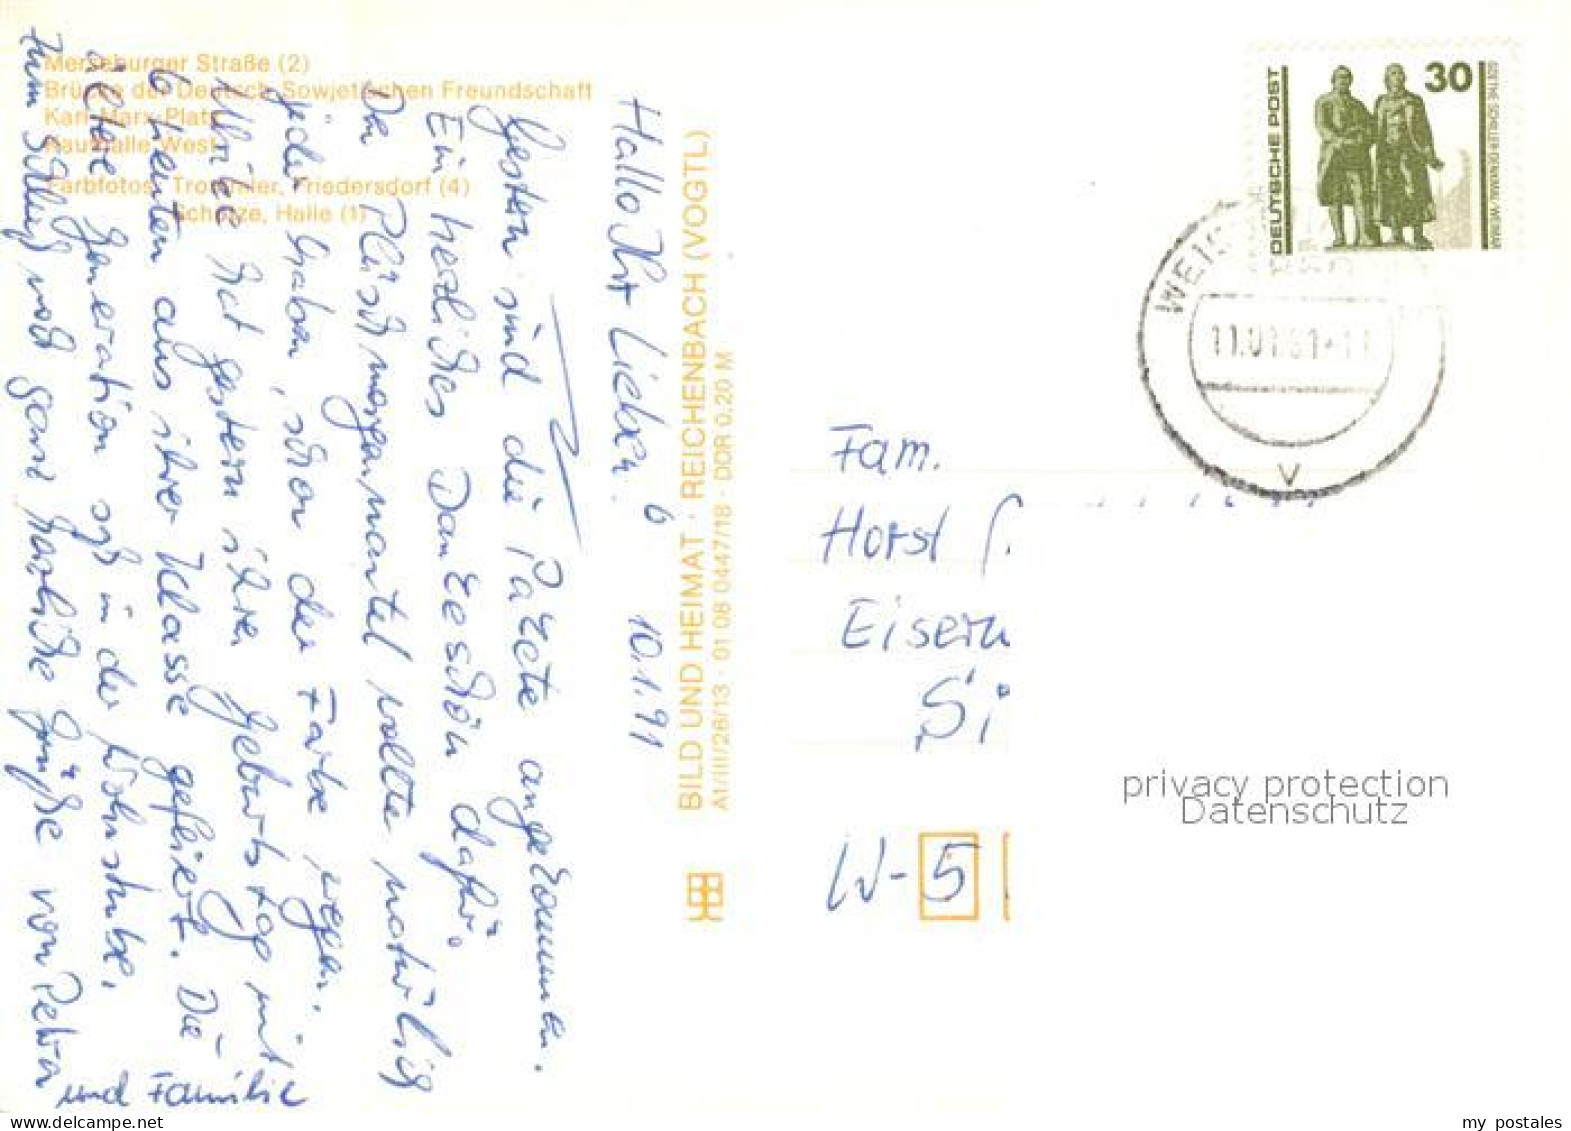 Merseburger Straße (2)
Brücke der Deutsch-Sowjetischen Freundschaft
Karl-Marx-Platz
Kaufhalle West
Farbfotos: Trommler, Friedersdorf (4)
Schütze, Halle (1)
Hallo Ihr Lieben!
10.1.91
Gestern sind die Pakete angekommen.
Ein herzliches Dankeschön dafür.
Den Plüschmorgenmantel wollte natürlich
jeder haben, schon der Farbe wegen.
Ulrike hat gestern ihren Geburtstag mit
6 Leuten aus ihrer Klasse gefeiert. Die
ältere Generation saß in der Wohnstube.
Zum Schluß noch ganz herzliche Grüße von Petra
und Familie
BILD UND HEIMAT · REICHENBACH (VOGTL)
A1/III/26/13 · 01 08 0447/18 · DDR 0,20 M
DEUTSCHE POST
30
GOETHE-SCHILLER-DENKMAL/WEIMAR
V
Fam.
Horst
Eisern
Si
W-5
privacy protection
Datenschutz
my postales